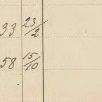 33 23/2
58 15/10